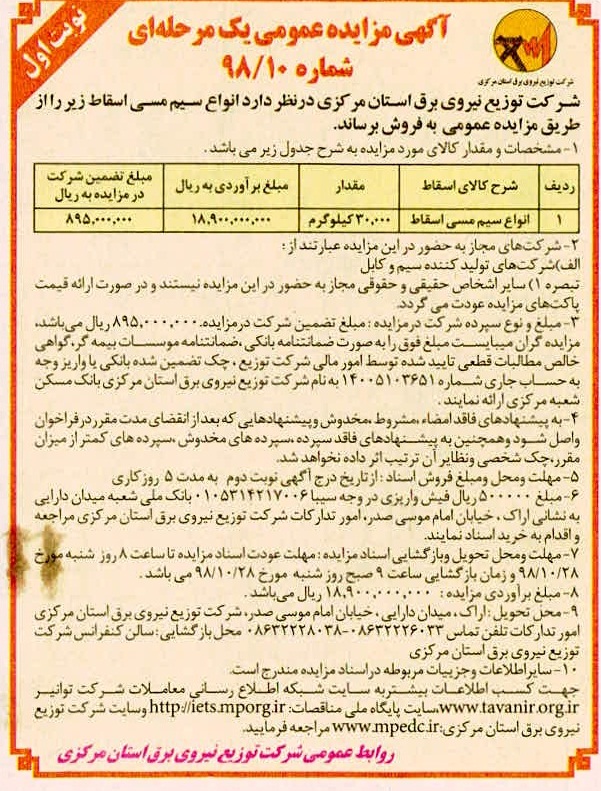 نوبت اول
آگهی مزایده عمومی یک مرحله‌ای
شماره ۹۸/۱۰
شرکت توزیع نیروی برق استان مرکزی
شرکت توزیع نیروی برق استان مرکزی درنظر دارد انواع سیم مسی اسقاط زیر را از
طریق مزایده عمومی به فروش برساند.
۱- مشخصات و مقدار کالای مورد مزایده به شرح جدول زیر می باشد.
ردیف شرح کالای اسقاط مقدار مبلغ برآوردی به ریال مبلغ تضمین شرکت در مزایده به ریال
۱ انواع سیم مسی اسقاط ۳۰,۰۰۰ کیلوگرم ۱۸,۹۰۰,۰۰۰,۰۰۰ ۸۹۵,۰۰۰,۰۰۰
۲- شرکت‌های مجاز به حضور در این مزایده عبارتند از:
الف) شرکت‌های تولید کننده سیم و کابل
تبصره ۱) سایر اشخاص حقیقی و حقوقی مجاز به حضور در این مزایده نیستند و در صورت ارائه قیمت
پاکت‌های مزایده عودت می گردد.
۳- مبلغ و نوع سپرده شرکت در مزایده : مبلغ تضمین شرکت درمزایده ۸۹۵,۰۰۰,۰۰۰ ریال می‌باشد،
مزایده گران میبایست مبلغ فوق را به صورت ضمانتنامه بانکی، ضمانتنامه موسسات بیمه گر، گواهی
خالص مطالبات قطعی تایید شده توسط امور مالی شرکت توزیع ، چک تضمین شده بانکی یا واریز وجه
به حساب جاری شماره ۱۴۰۰۵۱۰۳۶۵۱ به نام شرکت توزیع نیروی برق استان مرکزی بانک مسکن
شعبه مرکزی ارائه نمایند .
۴- به پیشنهادهای فاقد امضاء، مشروط، مخدوش و پیشنهادهایی که بعد از انقضای مدت مقرر در فراخوان
واصل شود و همچنین به پیشنهادهای فاقد سپرده، سپرده های مخدوش ، سپرده های کمتر از میزان
مقرر، چک شخصی و نظایر آن ترتیب اثر داده نخواهد شد.
۵- مهلت ومحل ومبلغ فروش اسناد : از تاریخ درج آگهی نوبت دوم به مدت ۵ روز کاری
۶- مبلغ ۵۰۰۰۰۰ ریال فیش واریزی در وجه سیبا ۰۱۰۵۳۱۴۲۱۷۰۰۶ بانک ملی شعبه میدان دارایی
به نشانی اراک ، خیابان امام موسی صدر، امور تدارکات شرکت توزیع نیروی برق استان مرکزی مراجعه
و اقدام به خرید اسناد نمایند.
۷- مهلت ومحل تحویل وبازگشایی اسناد مزایده : مهلت عودت اسناد مزایده تا ساعت ۸ روز شنبه مورخ
۹۸/۱۰/۲۸ و زمان بازگشایی ساعت ۹ صبح روز شنبه مورخ ۹۸/۱۰/۲۸ می باشد .
۸- مبلغ برآوردی مزایده : ۱۸,۹۰۰,۰۰۰,۰۰۰ ریال می‌باشد .
۹- محل تحویل : اراک ، میدان دارایی ، خیابان امام موسی صدر، شرکت توزیع نیروی برق استان مرکزی
امور تدارکات تلفن تماس ۰۸۶۳۲۲۲۶۰۳۳-۰۸۶۳۲۲۲۸۰۳۸ محل بازگشایی : سالن کنفرانس شرکت
توزیع نیروی برق استان مرکزی
۱۰- سایر اطلاعات و جزییات مربوطه در اسناد مزایده مندرج است.
جهت کسب اطلاعات بیشتر به سایت شبکه اطلاع رسانی معاملات شرکت توانیر
www.tavanir.org.ir، سایت پایگاه ملی مناقصات: http://iets.mporg.ir وسایت شرکت توزیع
نیروی برق استان مرکزی: www.mpedc.ir مراجعه فرمایید.
روابط عمومی شرکت توزیع نیروی برق استان مرکزی